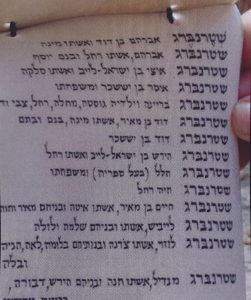 שטרנברג אברהם בן דוד ואשתו מינה
שטרנברג אברהם, אשתו רחל ובנם יוסף
שטרנברג איצי בן ישראל-לייב ואשתו מלכה
שטרנברג איסר בן יששכר ומשפחתו
שטרנברג בריינה וילדיה גוסטה, מחלה, רחל, צבי וד
שטרנברג דוד בן מאיר, אשתו מינה, בנם ובתם
שטרנברג דוד בן יששכר
שטרנברג הירש בן ישראל-לייב ואשתו רחל
שטרנברג הלל (בעל ספריה) ומשפחתו
שטרנברג חיה רחל
שטרנברג חיים בן מאיר, אשתו איטה ובניהם מאיר וחוה
שטרנברג לייביש, אשתו ובניהם שלמה ולולה
שטרנברג לוזר, אשתו צרנה ובנותיהם בלומה, לאה, חניה
ובלה
שטרנברג מנדיל, אשתו חנה ובניהם הירש, דבורה,